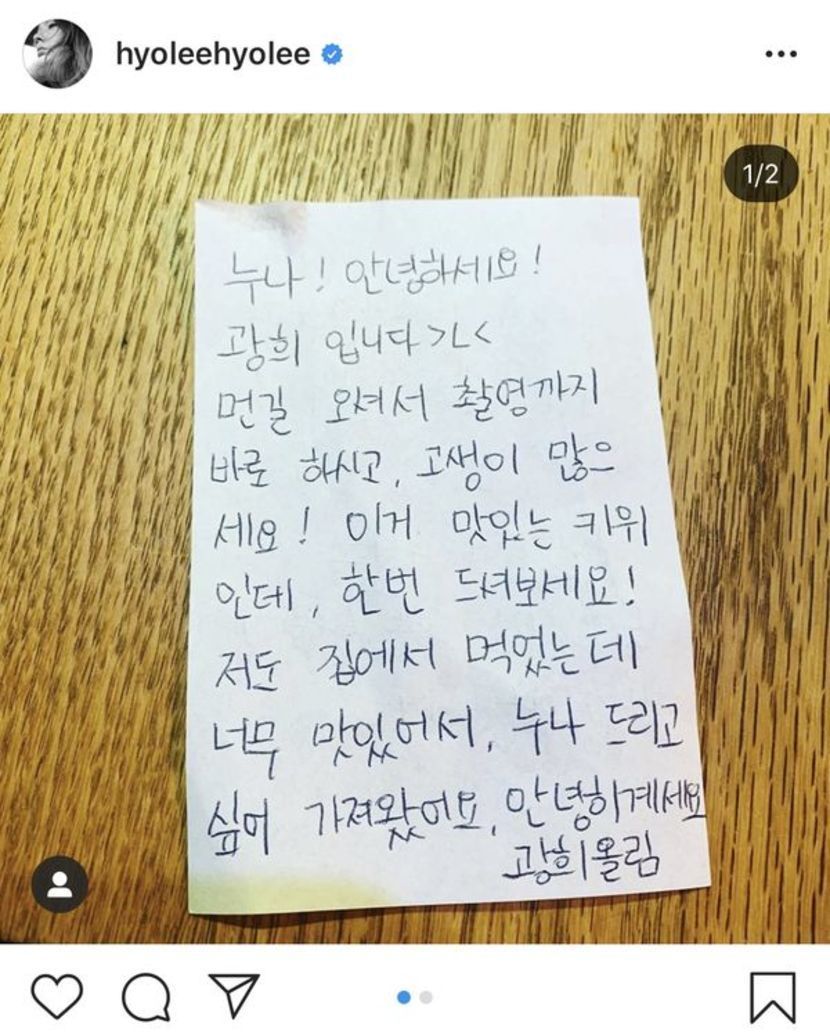 hyoleehyolee
1/2
누나! 안녕하세요!
광희 입니다>L<
먼길 오셔서 촬영까지
바로 하시고, 고생이 많으
세요! 이거 맛있는 키위
인데, 한번 드셔보세요!
저는 집에서 먹었는데
너무 맛있어서, 누나 드리고
싶어 가져왔어요, 안녕히계세요
광희올림